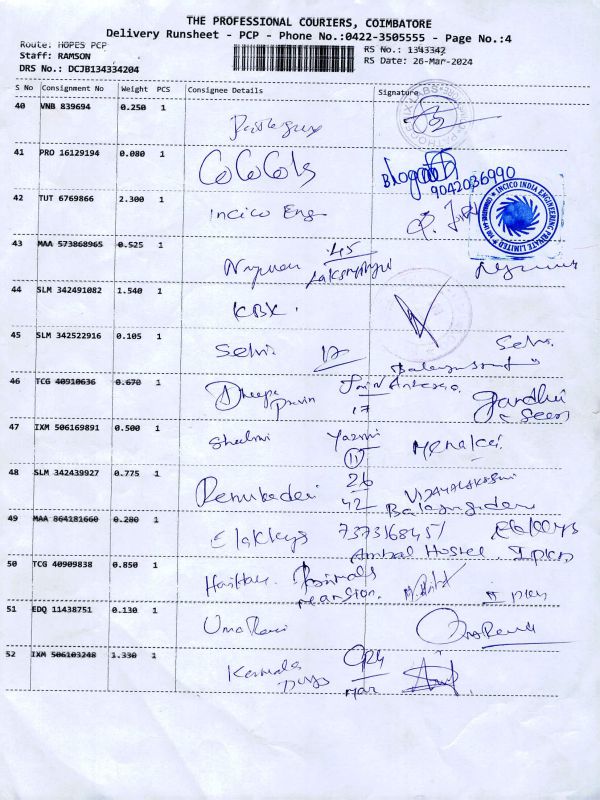 THE PROFESSIONAL COURIERS, COIMBATORE
Delivery Runsheet - PCP - Phone No.:0422-3505555 - Page No.:4
Route: HOPES PCP
RS No.: 1343342
Staff: RAMSON
RS Date: 26-Mar-2024
DRS No.: DCJB134334204
S No Consignment No Weight PCS Consignee Details Signature
40 VNB 839694 0.250 1
41 PRO 16129194 0.080 1 CoCoCols
9042036990
42 TUT 6769866 2.300 1 Incico Eng
INCICO INDIA ENGINEERING PRIVATE LIMITED
43 MAA 573868965 0.525 1 45
44 SLM 342491082 1.540 1 KBX.
45 SLM 342522916 0.105 1 Selvi 17 Selvi
46 TCG 40910636 0.670 1 Dheepa
17
47 IXM 506169891 0.500 1 Shalini Menaka
11
48 SLM 342439927 0.775 1 Renukadevi 26
42
49 MAA 864181660 0.280 1 Elakkya 7373168451 Elakkya
Ambal Hostel
50 TCG 40909838 0.850 1
mansion
51 EDQ 11438751 0.130 1 Uma Rani Uma Rani
52 IXM 506103248 1.330 1 Kamala